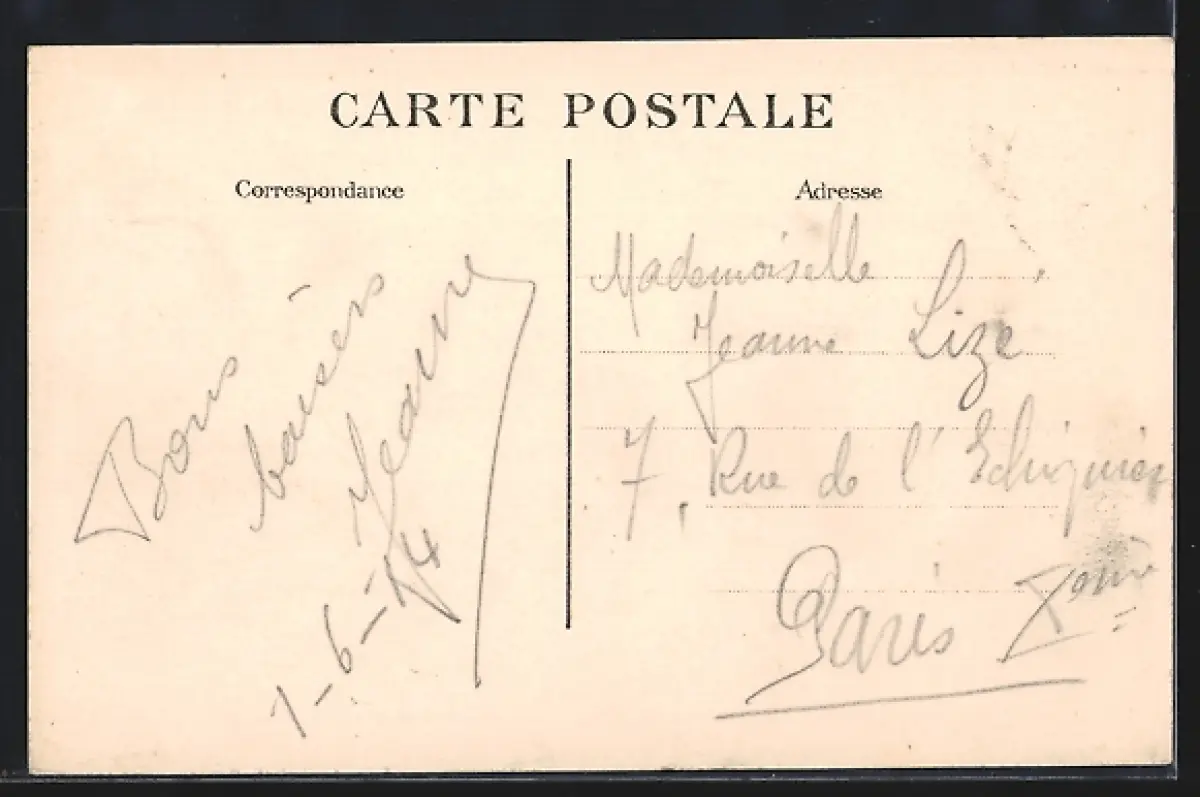 CARTE POSTALE
Correspondance
Bons
baisers
Jeanne
1-6-14
Adresse
Mademoiselle
Jeanne Lize
7, Rue de l'Echiquier
Paris Xème